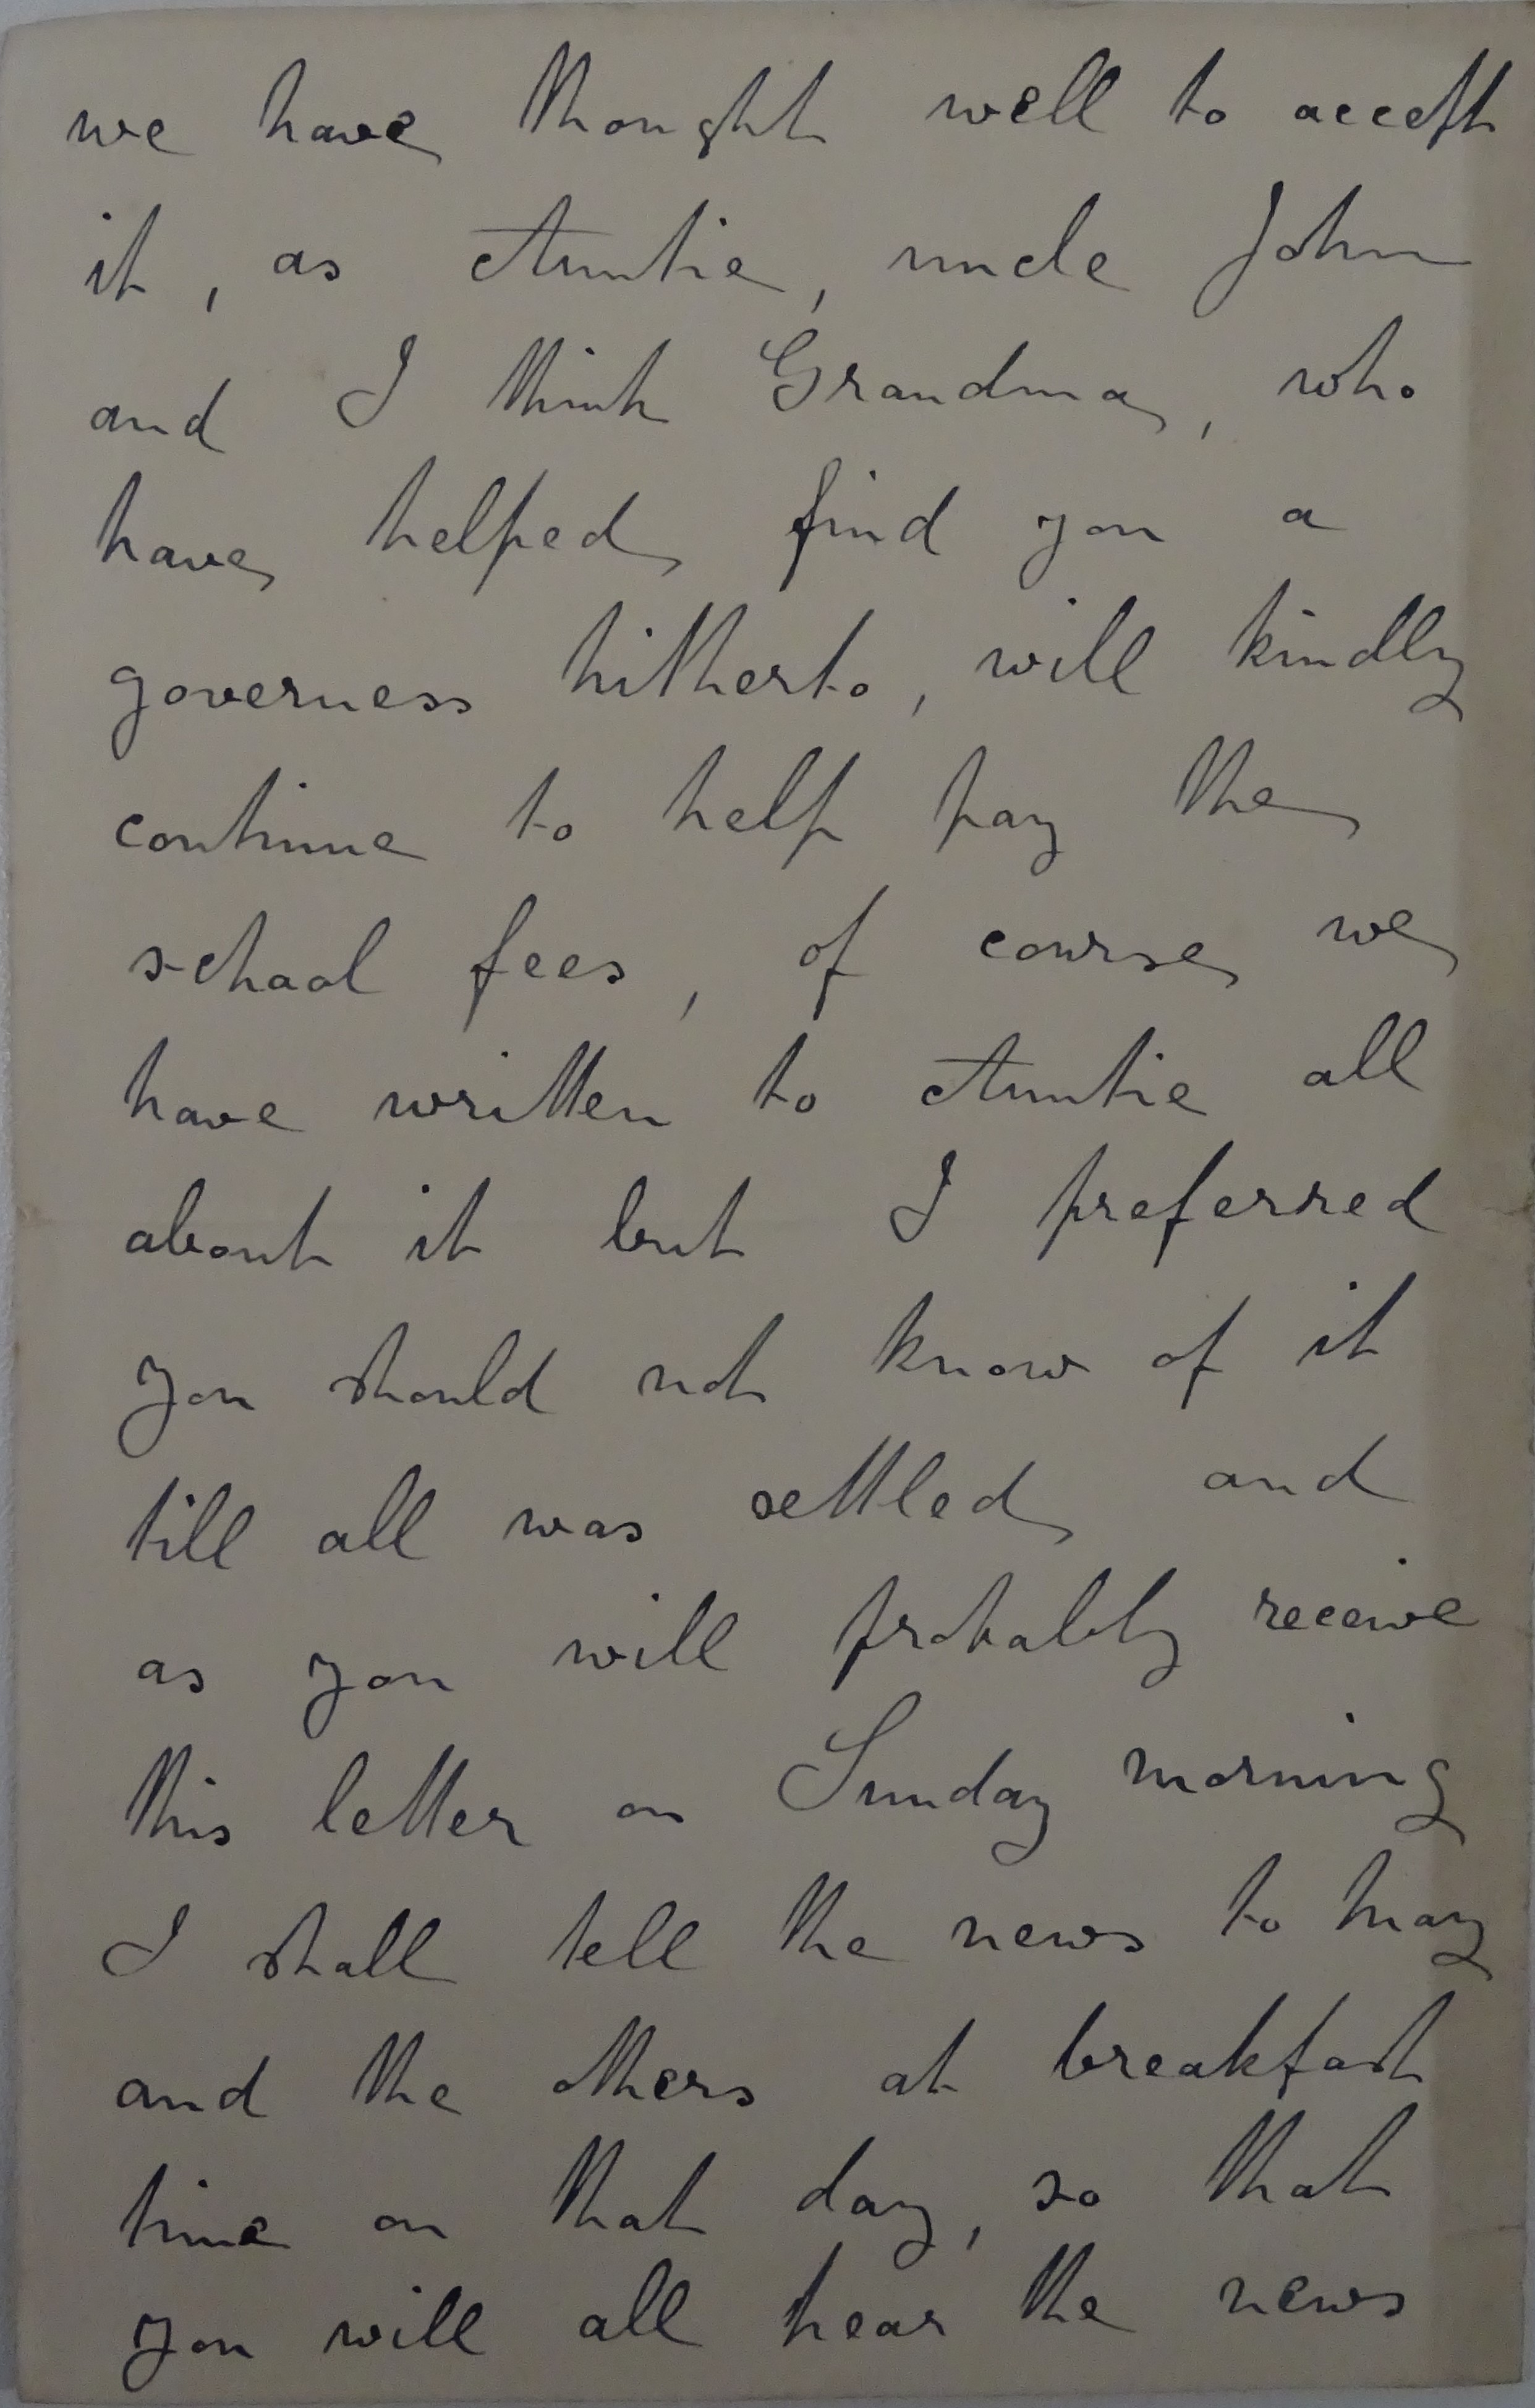 we have thought well to accept
it, as Auntie, uncle John
and I think Grandma, who
have helped find you a
governess hitherto, will kindly
continue to help pay the
school fees, of course we
have written to Auntie all
about it but I preferred
you should not know of it
till all was settled and
as you will probably receive
this letter on Sunday morning
I shall tell the news to May
and the others at breakfast
time on that day, so that
you will all hear the news